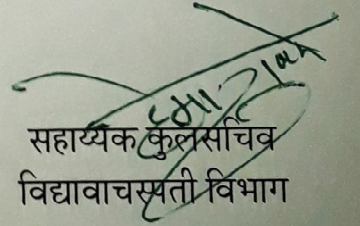 सहाय्यक कुलसचिव
विद्यावाचस्पती विभाग